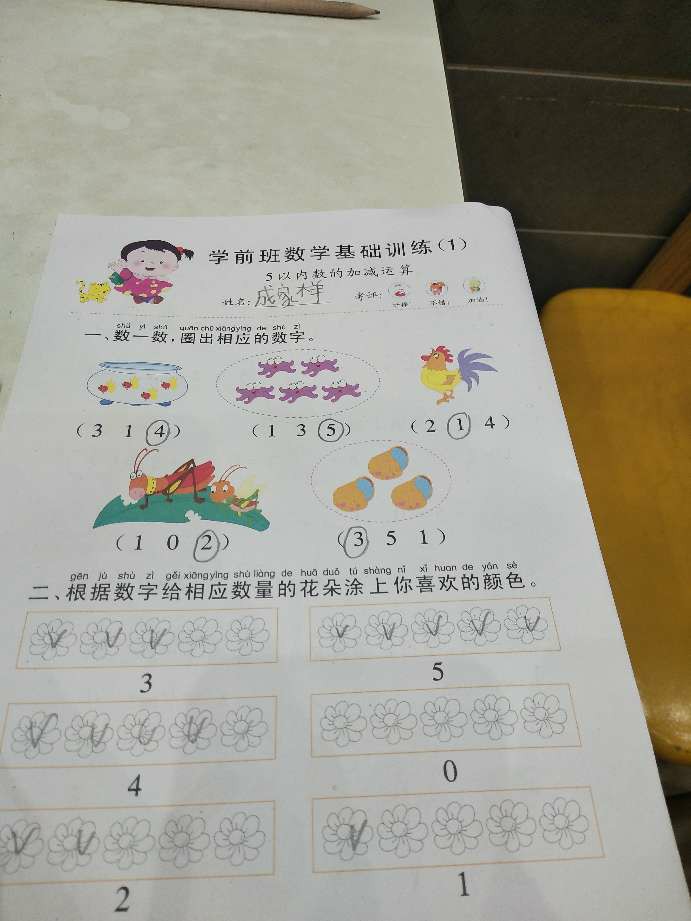 学前班数学基础训练(1)
5以内数的加减运算
姓名: 成家样 考评:
shǔ yì shǔ quān chū xiāng yìng de shù zì
一、数一数，圈出相应的数字。
( 3 1 4 ) ( 1 3 5 ) ( 2 1 4 )
( 1 0 2 ) ( 3 5 1 )
gēn jù shù zì gěi xiāng yìng shù liàng de huā duǒ tú shàng nǐ xǐ huan de yán sè
二、根据数字给相应数量的花朵涂上你喜欢的颜色。
3 5
4 0
2 1